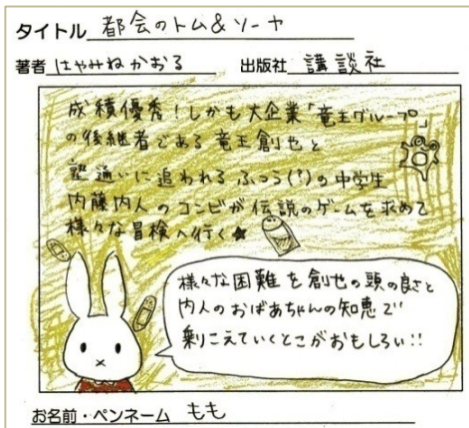 タイトル 都会のトム&ソーヤ
著者 はやみねかおる 出版社 講談社
成績優秀！しかも大企業「竜王グループ」
の後継者である 竜王創也と
塾通いに追われる ふつう(?)の中学生
内藤内人のコンビが伝説のゲームを求めて
様々な冒険へ行く★
様々な困難を創也の頭の良さと
内人のおばあちゃんの知恵で
乗りこえていくとこがおもしろい!!
お名前・ペンネーム もも